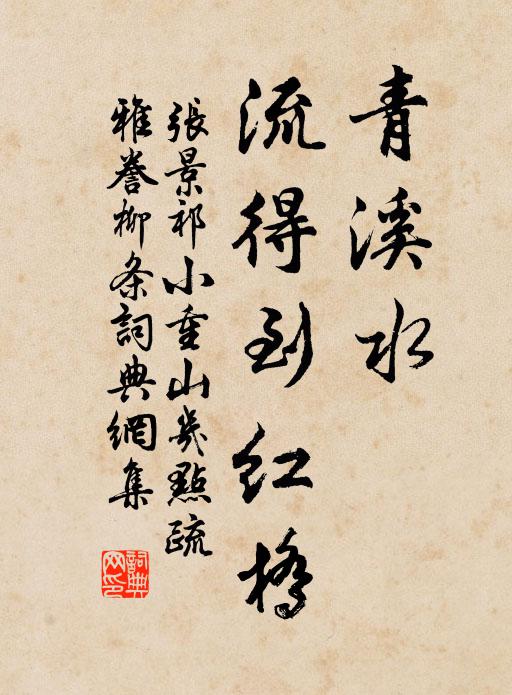 青溪水
流得到紅橋
張景祁小重山幾點疏
雅誉柳条詞典網集
詞典網印